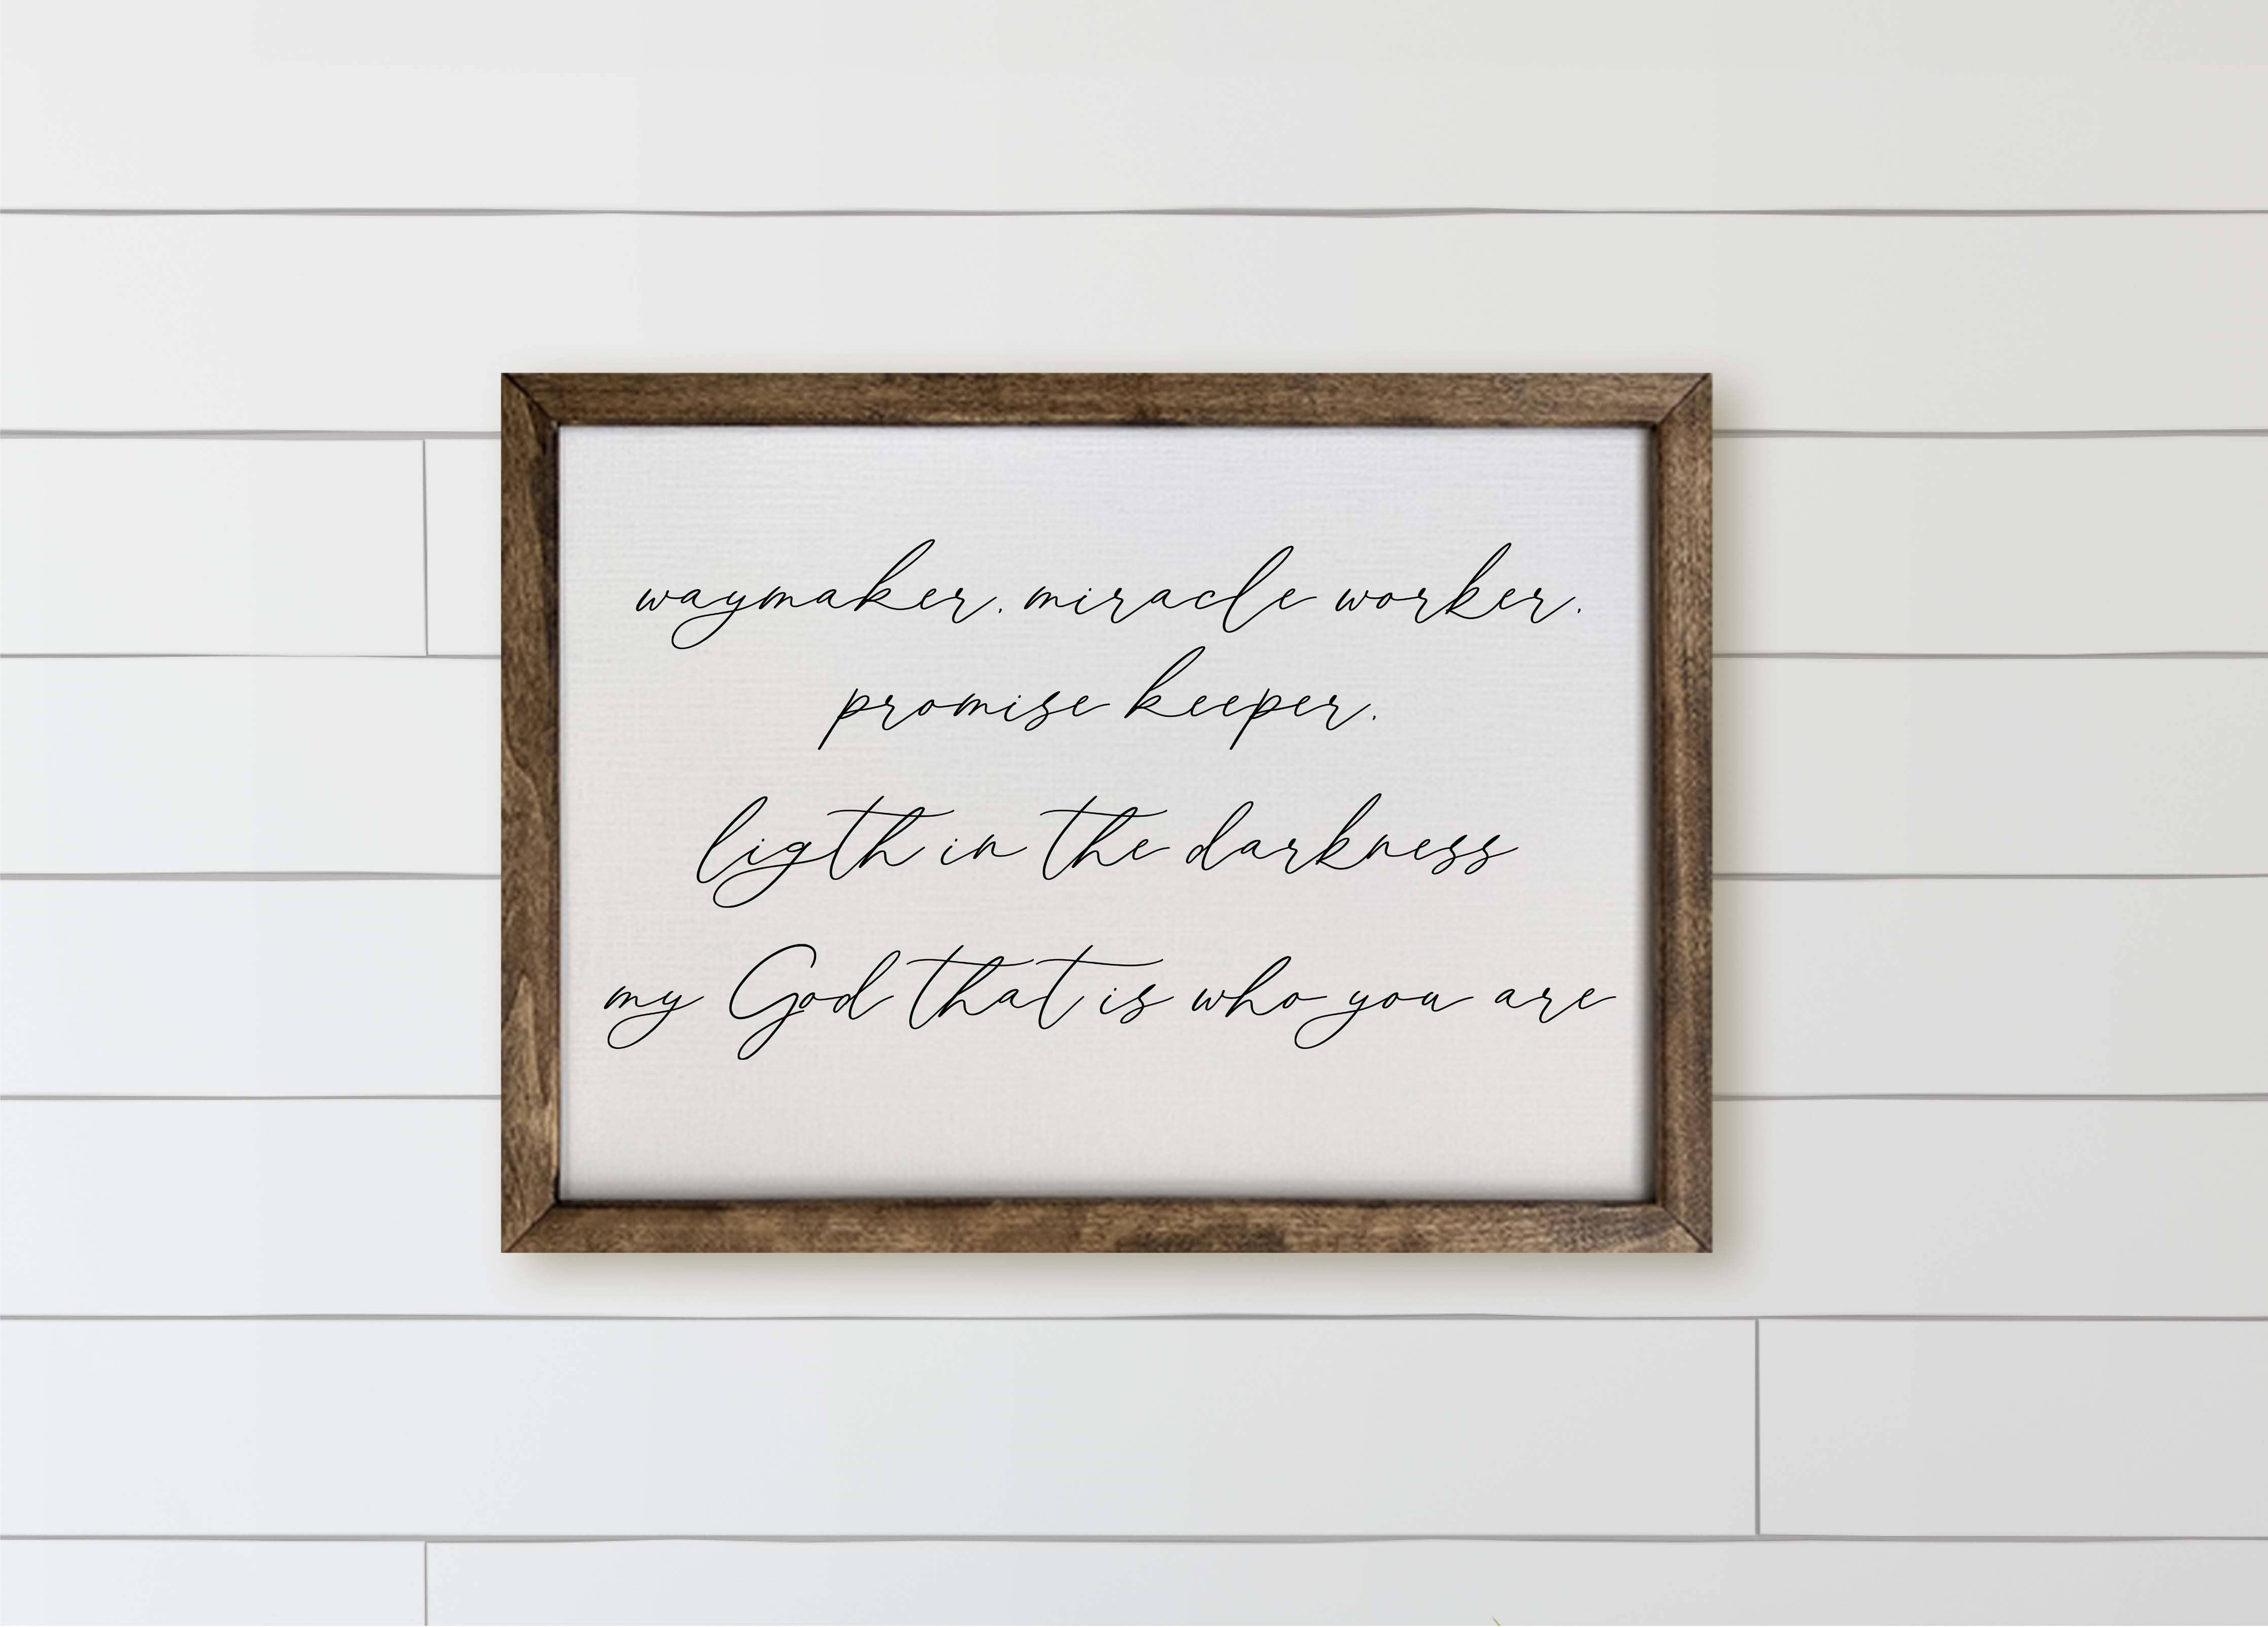 waymaker, miracle worker,
promise keeper,
ligth in the darkness
my God that is who you are